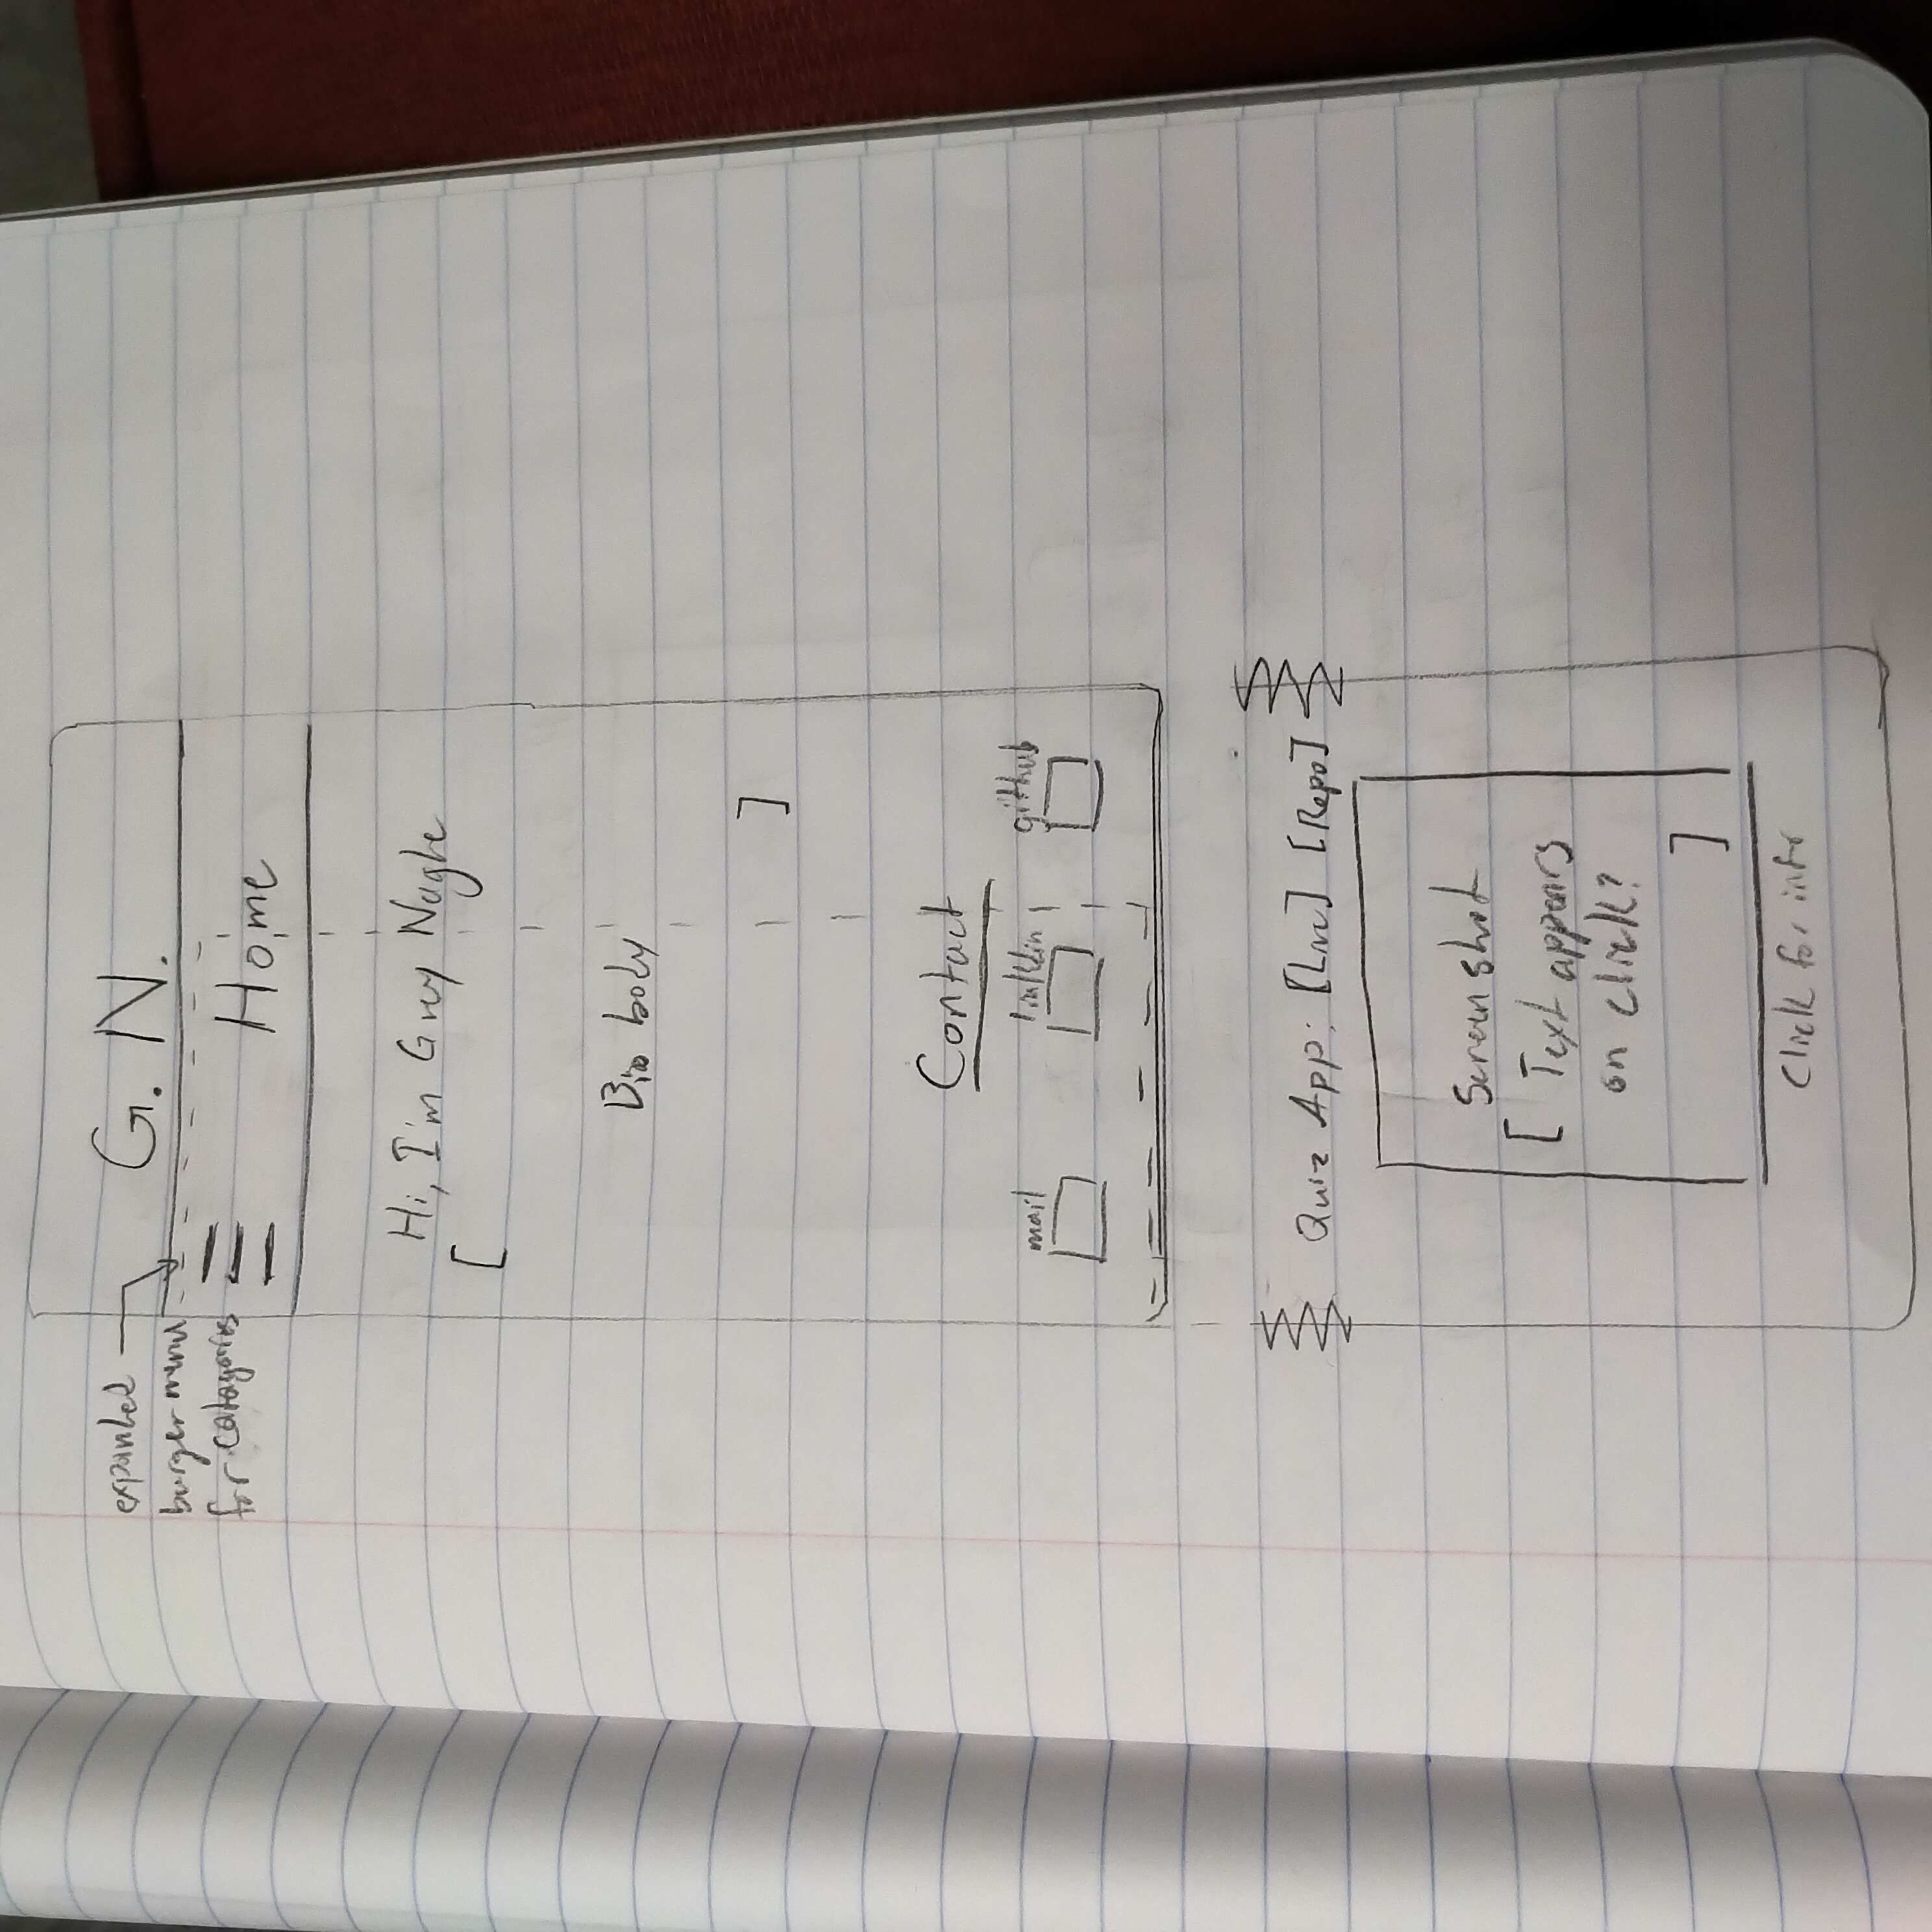 G. N.
expanded
burger menu
for catagories
Home
Hi, I'm Grey Nagle
[
Bio body
]
Contact
mail
github
Quiz App: [Live] [Repo]
Screenshot
[ Text appears
on click?
]
Click for info